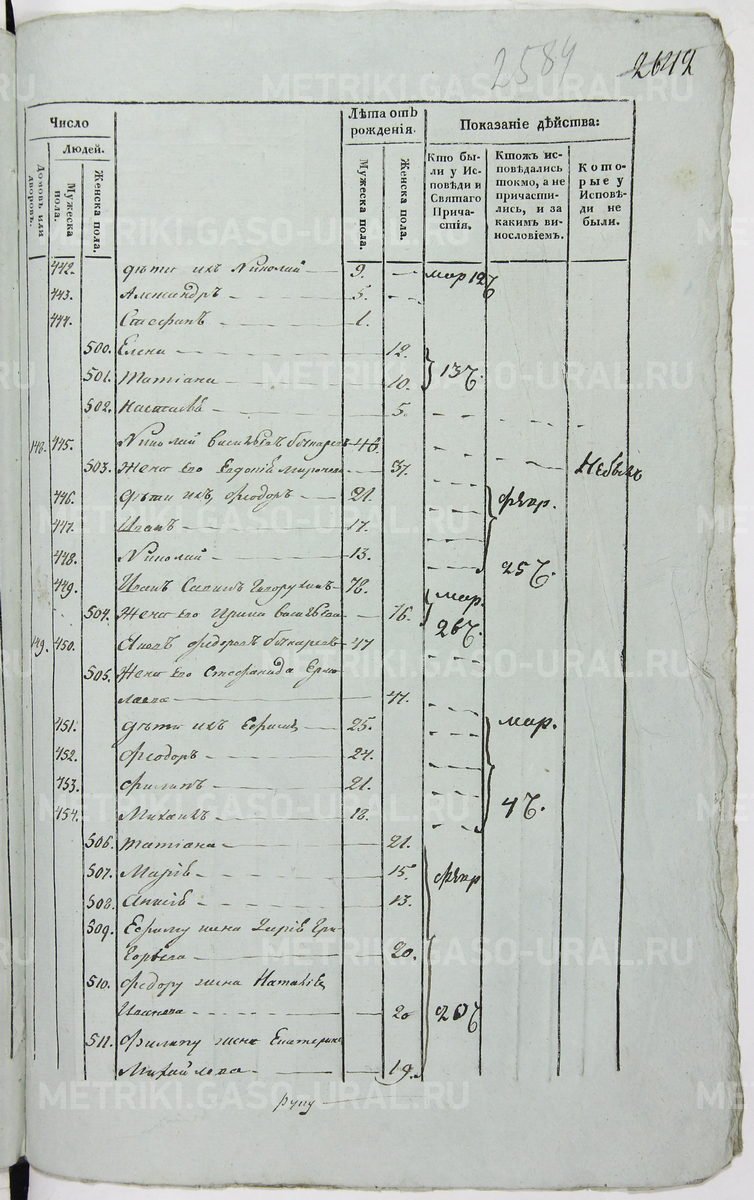 2584 2642
Число
Людей.
Домовъ или дворовъ.
Мужеска пола.
Женска пола.
Лѣта отъ рожденія.
Мужеска пола.
Женска пола.
Показаніе дѣйства:
Кто были у Исповѣди и Святаго Причастія.
Ктожъ исповѣдались токмо, а не причастились, и за какимъ винословіемъ.
Которые у Исповѣди не были.
442. дѣти ихъ Николай 9. мар 12
443. Александръ 5.
444. Стефанъ 1.
500. Елена 12.
501. Татіана 10. 13
502. Настасья 5.
148. 445. Николай Васильевъ 48.
503. Жена его Евдокія 37.
446. дѣти ихъ, Феодоръ 21. февр.
447. Иванъ 17.
448. Николай 13. 25
449. Иванъ 78. мар.
504. Жена его Ирина Васильева 76. 26
149. 450. Феодоровъ 47
505. Жена его Стефанида Ермолаева 47.
451. дѣти ихъ Ефимъ 25. мар.
452. Феодоръ 24.
453. Филипъ 21.
454. Михаилъ 18. 4
506. Татіана 21.
507. Марія 15 февр
508. Анисія 13.
509. Ефиму жена Григорьева 20.
510. Федору жена Наталія Иванова 20 20
511. Филипу жена Екатерина Михайлова 19.
METRIKI.GASO-URAL.RU